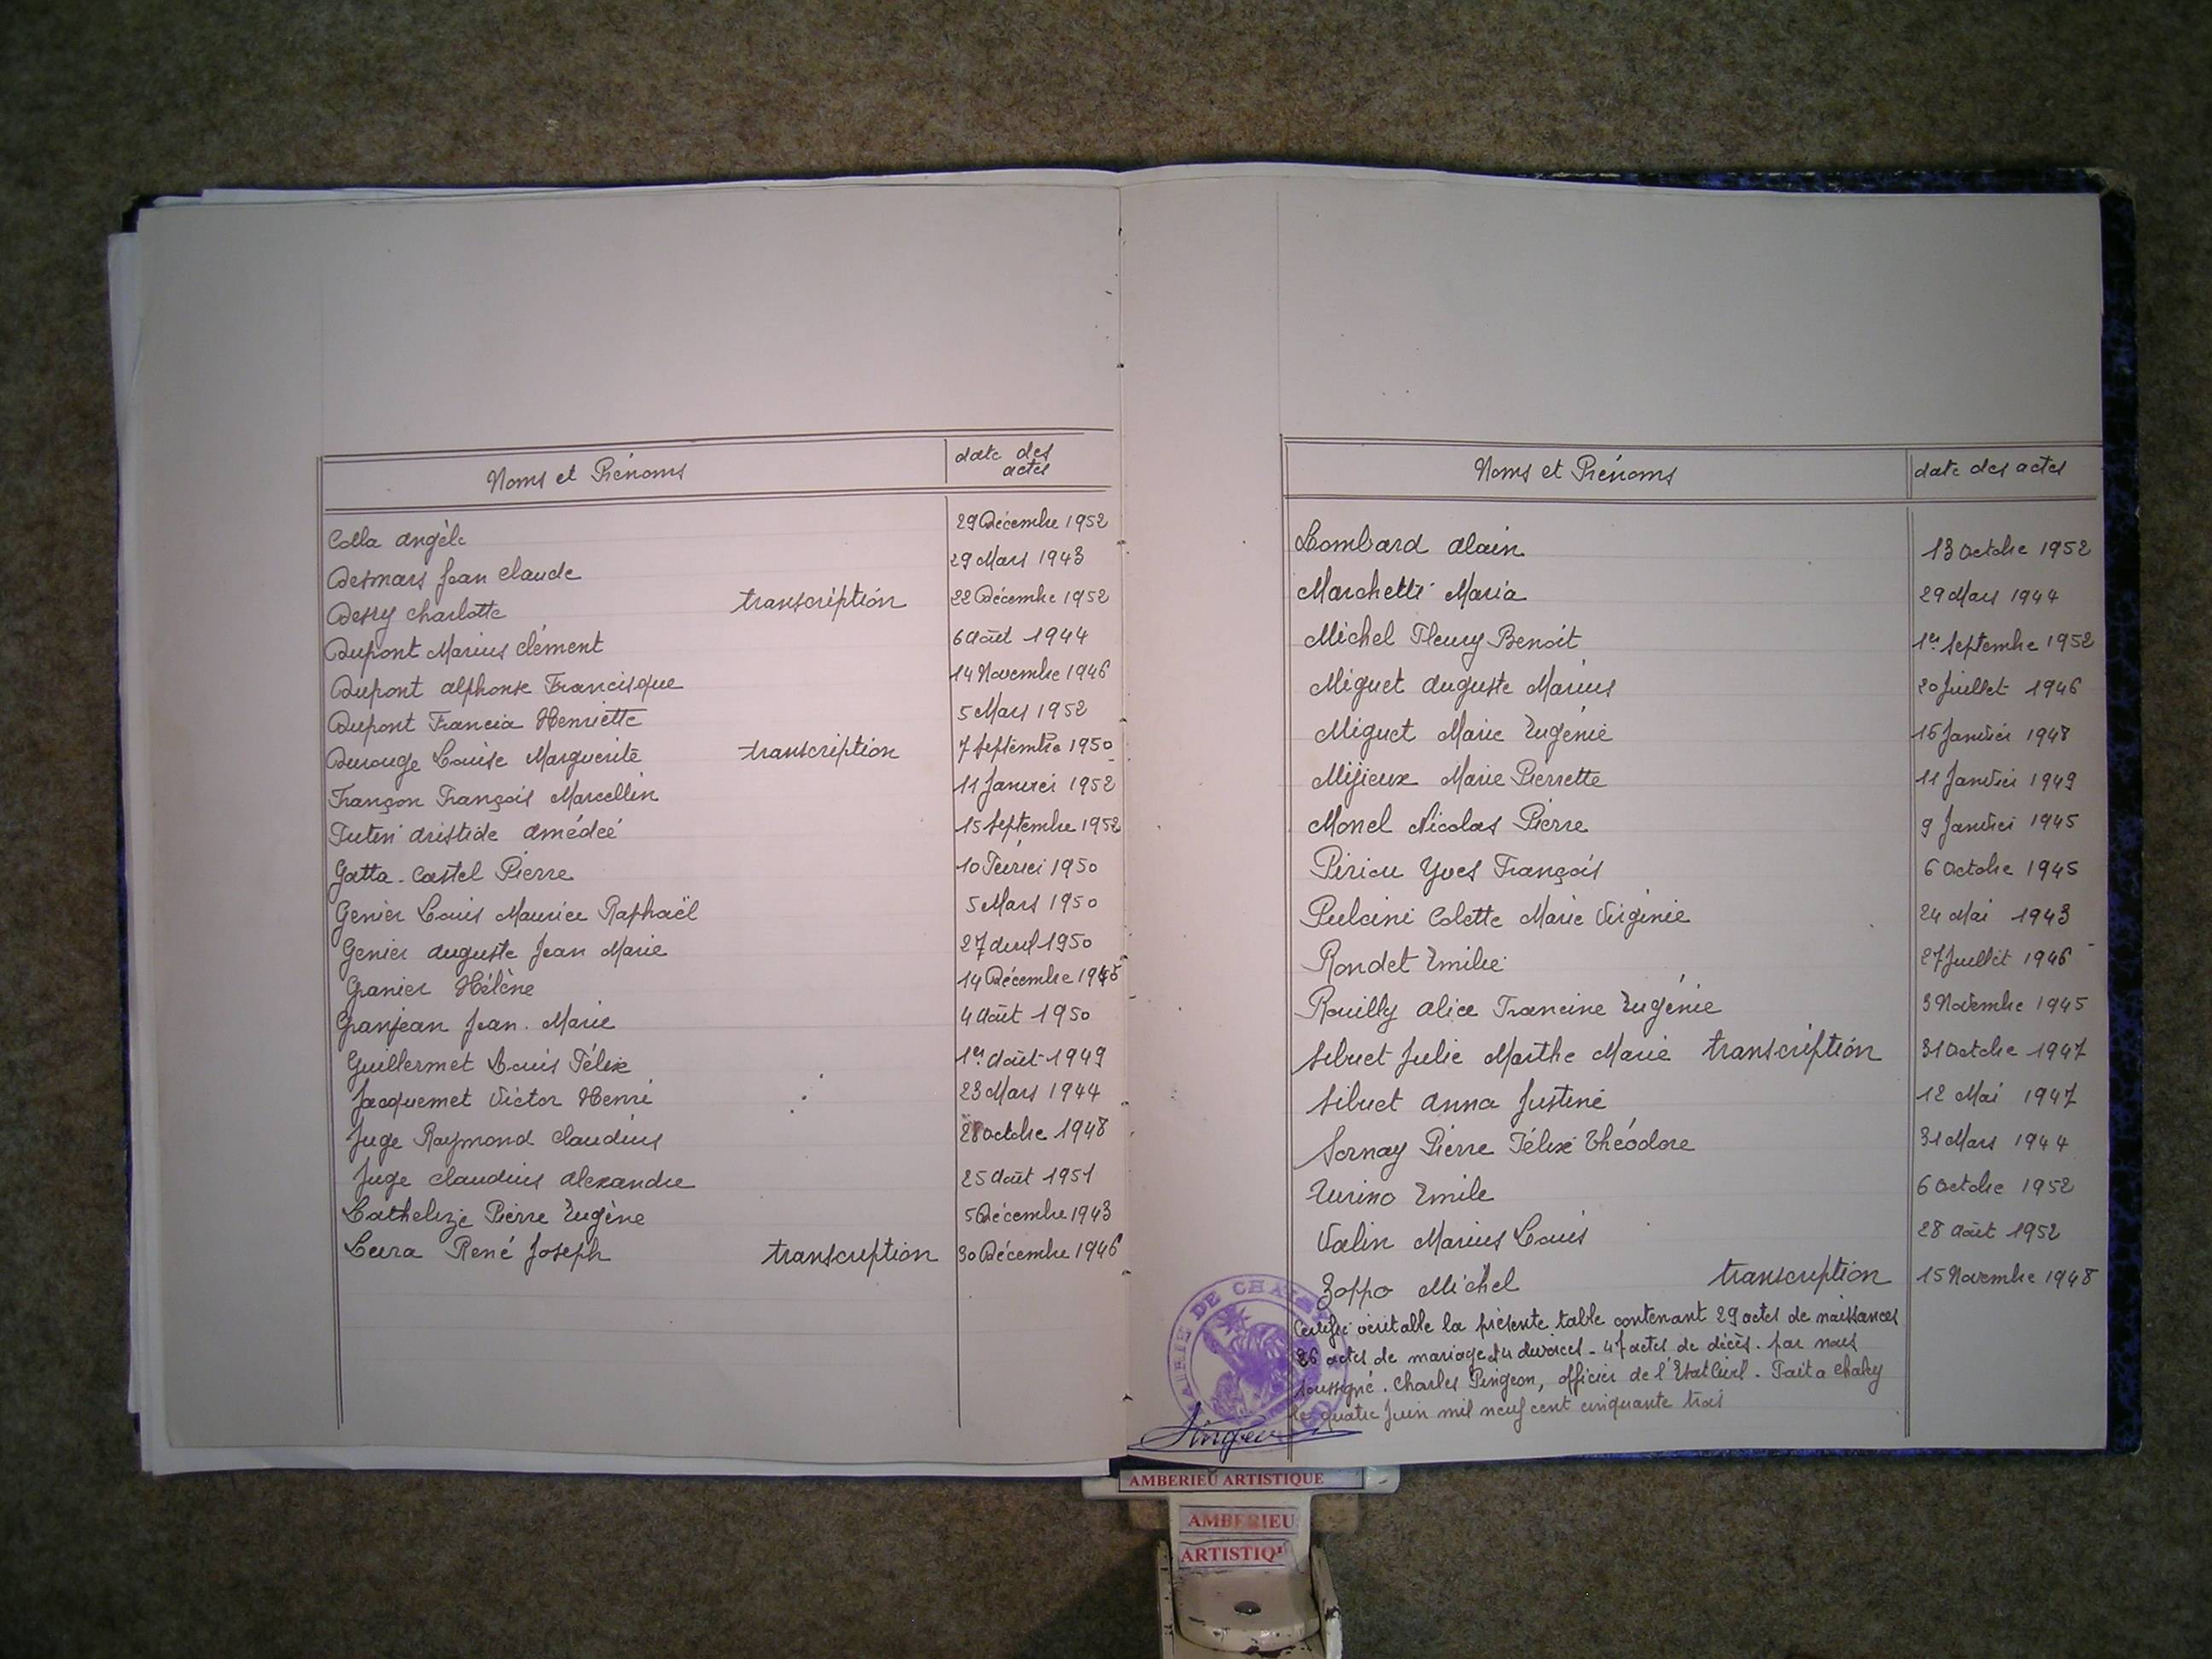 Noms et Prénoms date des actes
Colla Angèle 29 Décembre 1952
Desmars Jean Claude 29 Mars 1943
Dessy Charlotte transcription 22 Décembre 1952
Dupont Marius Clément 6 Août 1944
Dupont Alphonse Francisque 14 Novembre 1946
Dupont Francia Henriette 5 Mars 1952
Durouge Louise Marguerite transcription 7 Septembre 1950
Françon François Marcellin 11 Janvier 1952
Futin Aristide Amédée 15 Septembre 1952
Gatta-Castel Pierre 10 Février 1950
Genier Louis Maurice Raphaël 5 Mars 1950
Genier Auguste Jean Marie 27 Avril 1950
Granier Hélène 14 Décembre
Granjean Jean-Marie 4 Août 1950
Guillermet Louis Félix 1er Août 1949
Jacquemet Victor Henri 23 Mars 1944
Juge Raymond Claudius 28 Octobre 1948
Juge Claudius Alexandre 25 Août 1951
Lathelize Pierre Eugène 5 Décembre 1943
Leura René Joseph transcription 30 Décembre 1946
Noms et Prénoms date des actes
Lombard Alain 13 Octobre 1952
Marchetti Maria 29 Mars 1944
Michel Fleury Benoit 1er Septembre 1952
Miguet Auguste Marius 20 Juillet 1946
Miguet Marie Eugénie 16 Janvier 1948
Mijieux Marie Pierrette 11 Janvier 1949
Monel Nicolas Pierre 9 Janvier 1945
Piriou Yves François 6 Octobre 1945
Pulcini Colette Marie Virginie 24 Mai 1943
Rondet Emilie 27 Juillet 1946
Rouilly Alice Francine Eugénie 3 Novembre 1945
Sibuet Julie Marthe Marie transcription 31 Octobre 1947
Sibuet Anna Justine 12 Mai 1947
Sornay Pierre Félix Théodore 31 Mars 1944
Turino Emile 6 Octobre 1952
Valin Marius Louis 28 Août 1952
Zoppo Michel transcription 15 Novembre 1948
Certifié véritable la présente table contenant 29 actes de naissances
26 actes de mariage et 4 divorces - 47 actes de décès. par nous
soussigné. Charles Pingeon, officier de l'Etat Civil. Fait a Chaley
le quatre Juin mil neuf cent cinquante trois
MAIRIE DE CHALEY
Pingeon
AMBERIEU ARTISTIQUE
AMBERIEU
ARTISTIQ